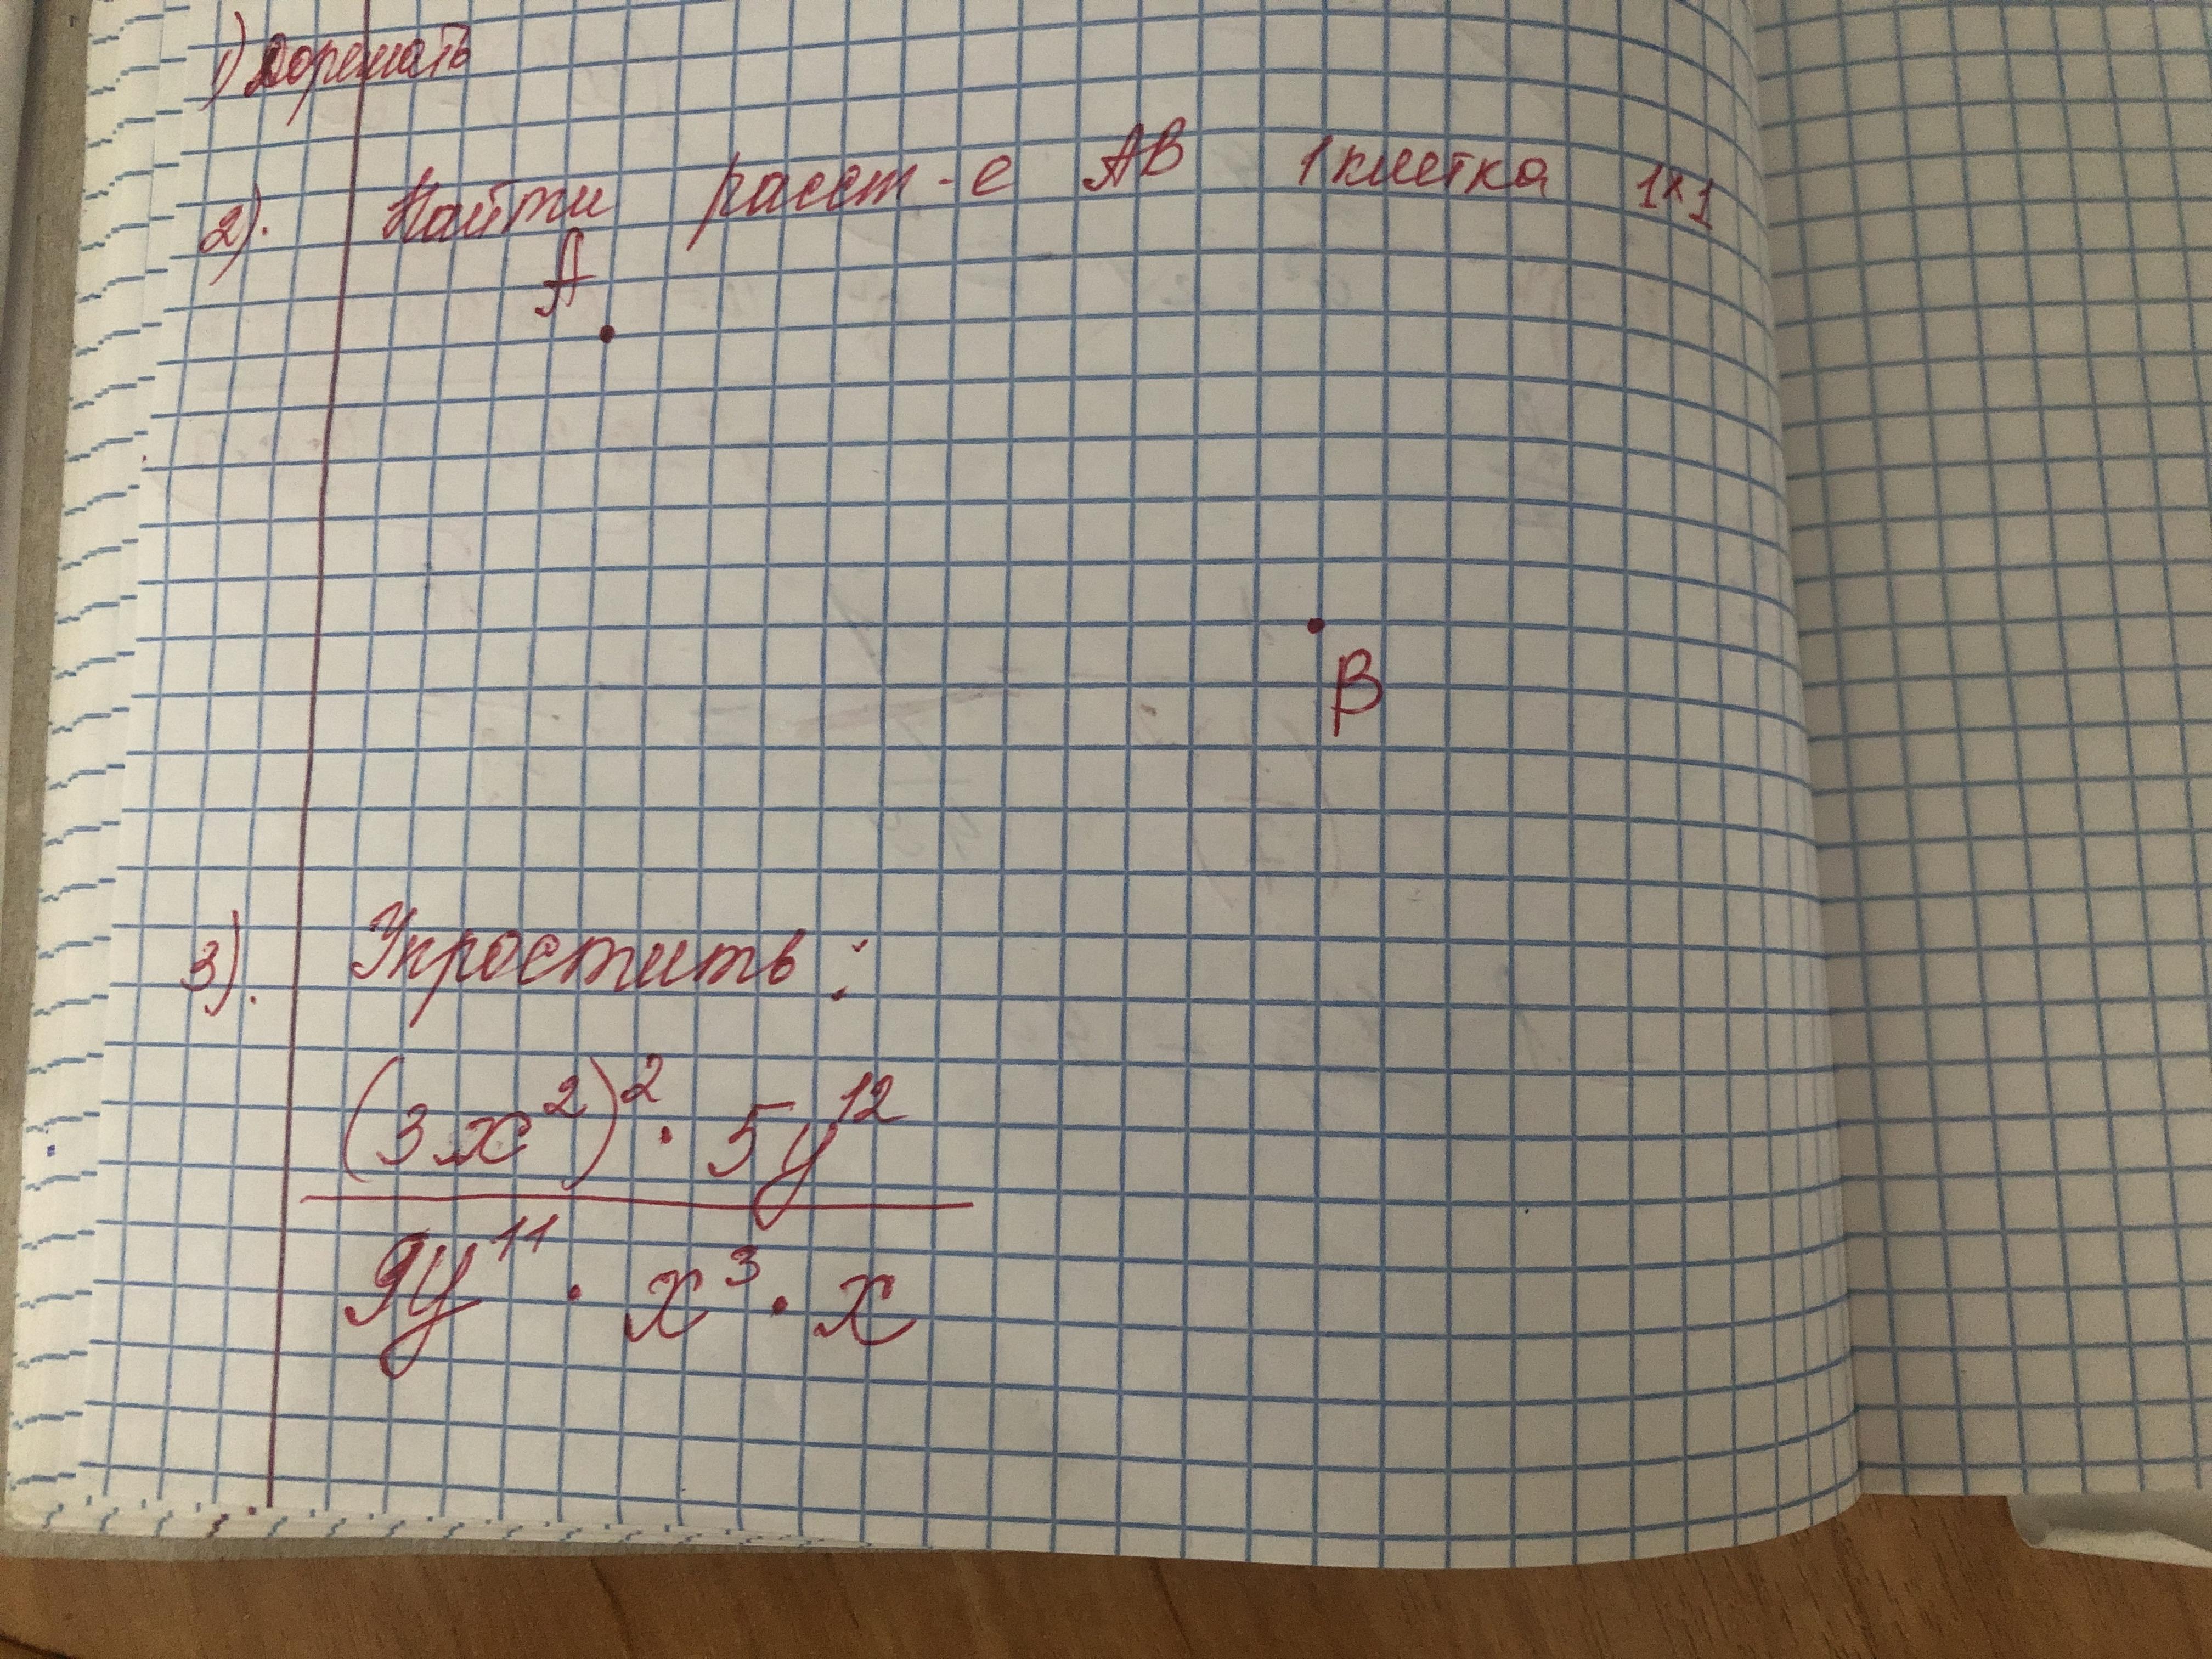 1) Дорешать
2). Найти расст-е AB 1 клетка 1×1
A
B
3). Упростить:
(3x²)² · 5y¹²
9y¹¹ · x³ · x